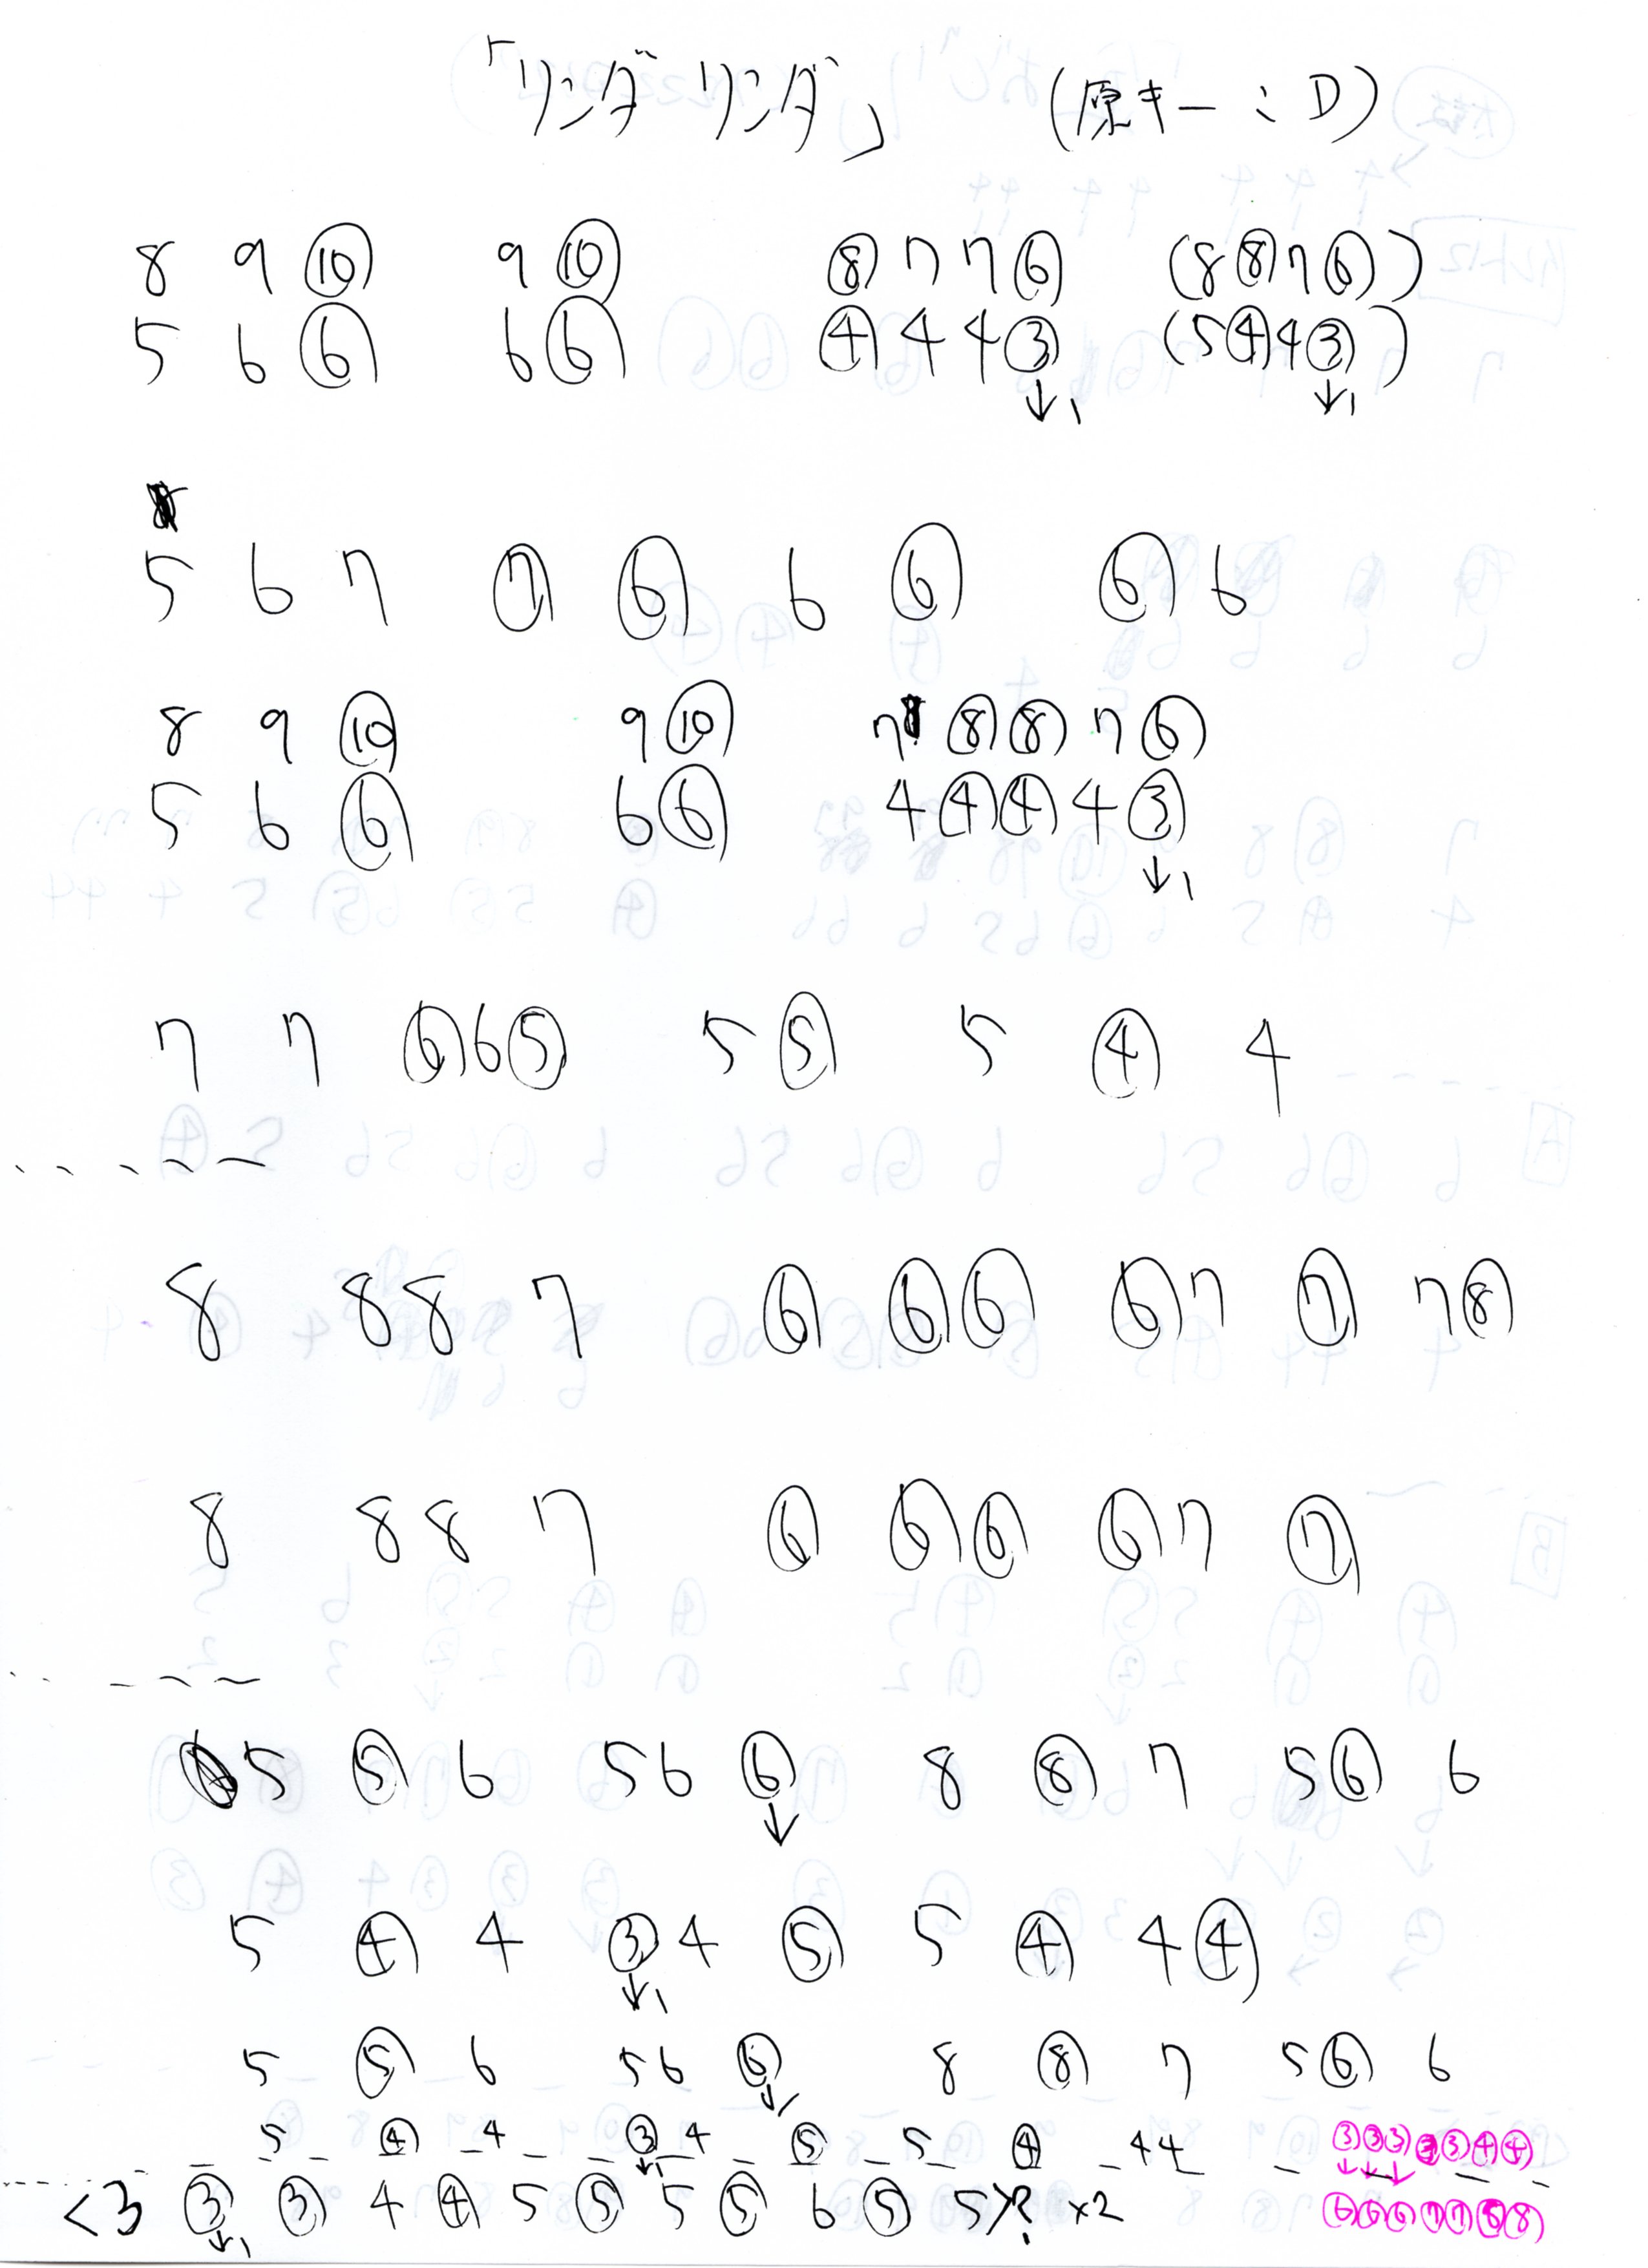 「リンダ リンダ」 (原キー:D)
8 9 ⑩ 9 ⑩ ⑧ 7 7 ⑥ (8 ⑧ 7 ⑥)
5 6 ⑥ 6 ⑥ ④ 4 4 ③ (5 ④ 4 ③)
↓1 ↓1
5 6 7 ⑦ ⑥ 6 ⑥ ⑥ 6
8 9 ⑩ 9 ⑩ 7 ⑧ ⑧ 7 ⑥
5 6 ⑥ 6 ⑥ 4 ④ ④ 4 ③
↓1
7 7 ⑥ 6 ⑤ 5 ⑤ 5 ④ 4
8 8 8 7 ⑥ ⑥ ⑥ ⑥ 7 ⑦ 7 ⑧
8 8 8 7 ⑥ ⑥ ⑥ ⑥ 7 ⑦
5 ⑤ 6 5 6 ⑥ 8 ⑧ 7 5 ⑥ 6
↓
5 ④ 4 ③ 4 ⑤ 5 ④ 4 ④
↓1
5 ⑤ 6 5 6 ⑥ 8 ⑧ 7 5 ⑥ 6
↓
5 ④ 4 ③ 4 ⑤ 5 ④ 4 4 ③ ③ ③ ③ ④ ④
↓1 ↓ ↓ ↓
<3 ③ ③ 4 ④ 5 ⑤ 5 ⑤ 6 ⑤ 5>? ×2 ⑥ ⑥ ⑥ ⑦ ⑦ ⑧ ⑧
↓1